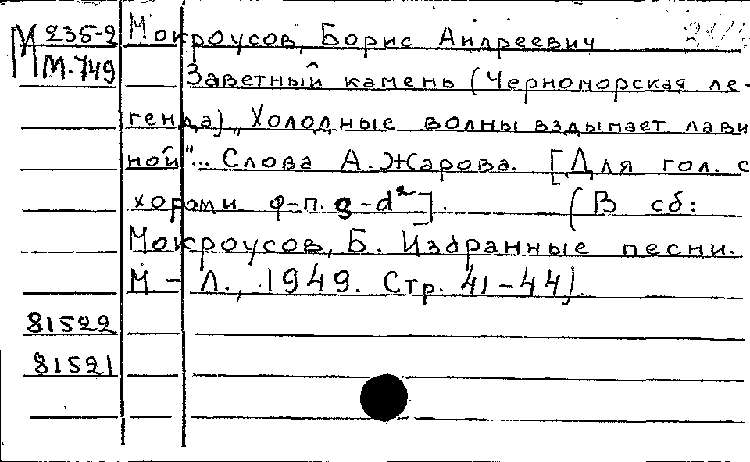 М 235-2 Мокроусов, Борис Андреевич
М.749 Заветный камень (Черноморская ле-
генда) „Холодные волны вздымает лави
ной"... Слова А. Жарова. [Для гол. с
хорами ф-п. g-d²]. (В сб:
Мокроусов, Б. Избранные песни.
М - Л., 1949. Стр. 41-44)
81522
81521